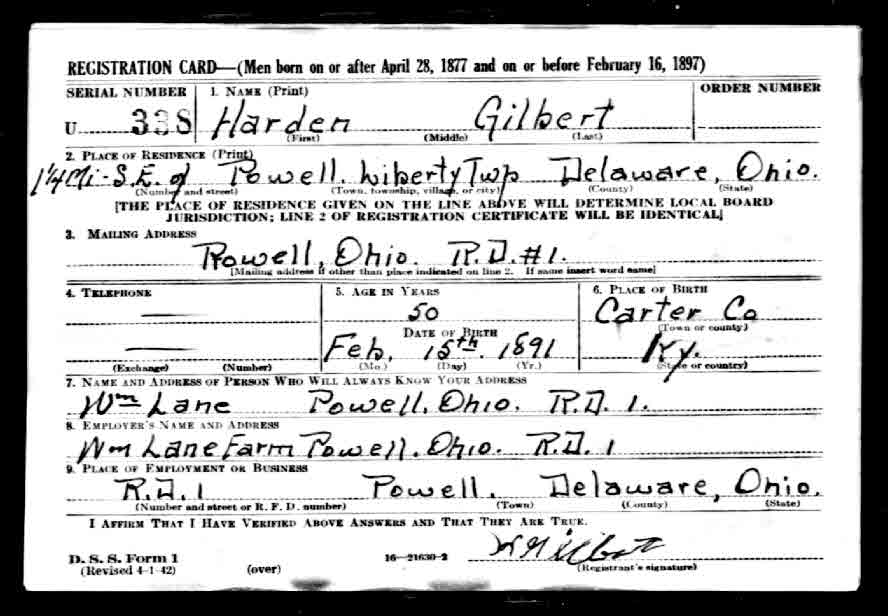 REGISTRATION CARD—(Men born on or after April 28, 1877 and on or before February 16, 1897)
SERIAL NUMBER 1. NAME (Print) ORDER NUMBER
U 338 Harden Gilbert
(First) (Middle) (Last)
2. PLACE OF RESIDENCE (Print)
1¼ Mi- S.E. of Powell. Liberty Twp Delaware, Ohio.
(Number and street) (Town, township, village, or city) (County) (State)
[THE PLACE OF RESIDENCE GIVEN ON THE LINE ABOVE WILL DETERMINE LOCAL BOARD
JURISDICTION; LINE 2 OF REGISTRATION CERTIFICATE WILL BE IDENTICAL]
3. MAILING ADDRESS
Powell, Ohio. R.D. #1.
[Mailing address if other than place indicated on line 2. If same insert word same]
4. TELEPHONE 5. AGE IN YEARS 6. PLACE OF BIRTH
50 Carter Co
(Town or county)
DATE OF BIRTH
Feb. 15th. 1891 Ky.
(Exchange) (Number) (Mo.) (Day) (Yr.) (State or country)
7. NAME AND ADDRESS OF PERSON WHO WILL ALWAYS KNOW YOUR ADDRESS
Wm Lane Powell, Ohio. R.D. 1.
8. EMPLOYER'S NAME AND ADDRESS
Wm Lane Farm Powell, Ohio. R.D. 1
9. PLACE OF EMPLOYMENT OR BUSINESS
R.D. 1 Powell. Delaware, Ohio.
(Number and street or R. F. D. number) (Town) (County) (State)
I AFFIRM THAT I HAVE VERIFIED ABOVE ANSWERS AND THAT THEY ARE TRUE.
D. S. S. Form 1
(Revised 4-1-42) (over) 16—21630-2 H Gilbert
(Registrant's signature)